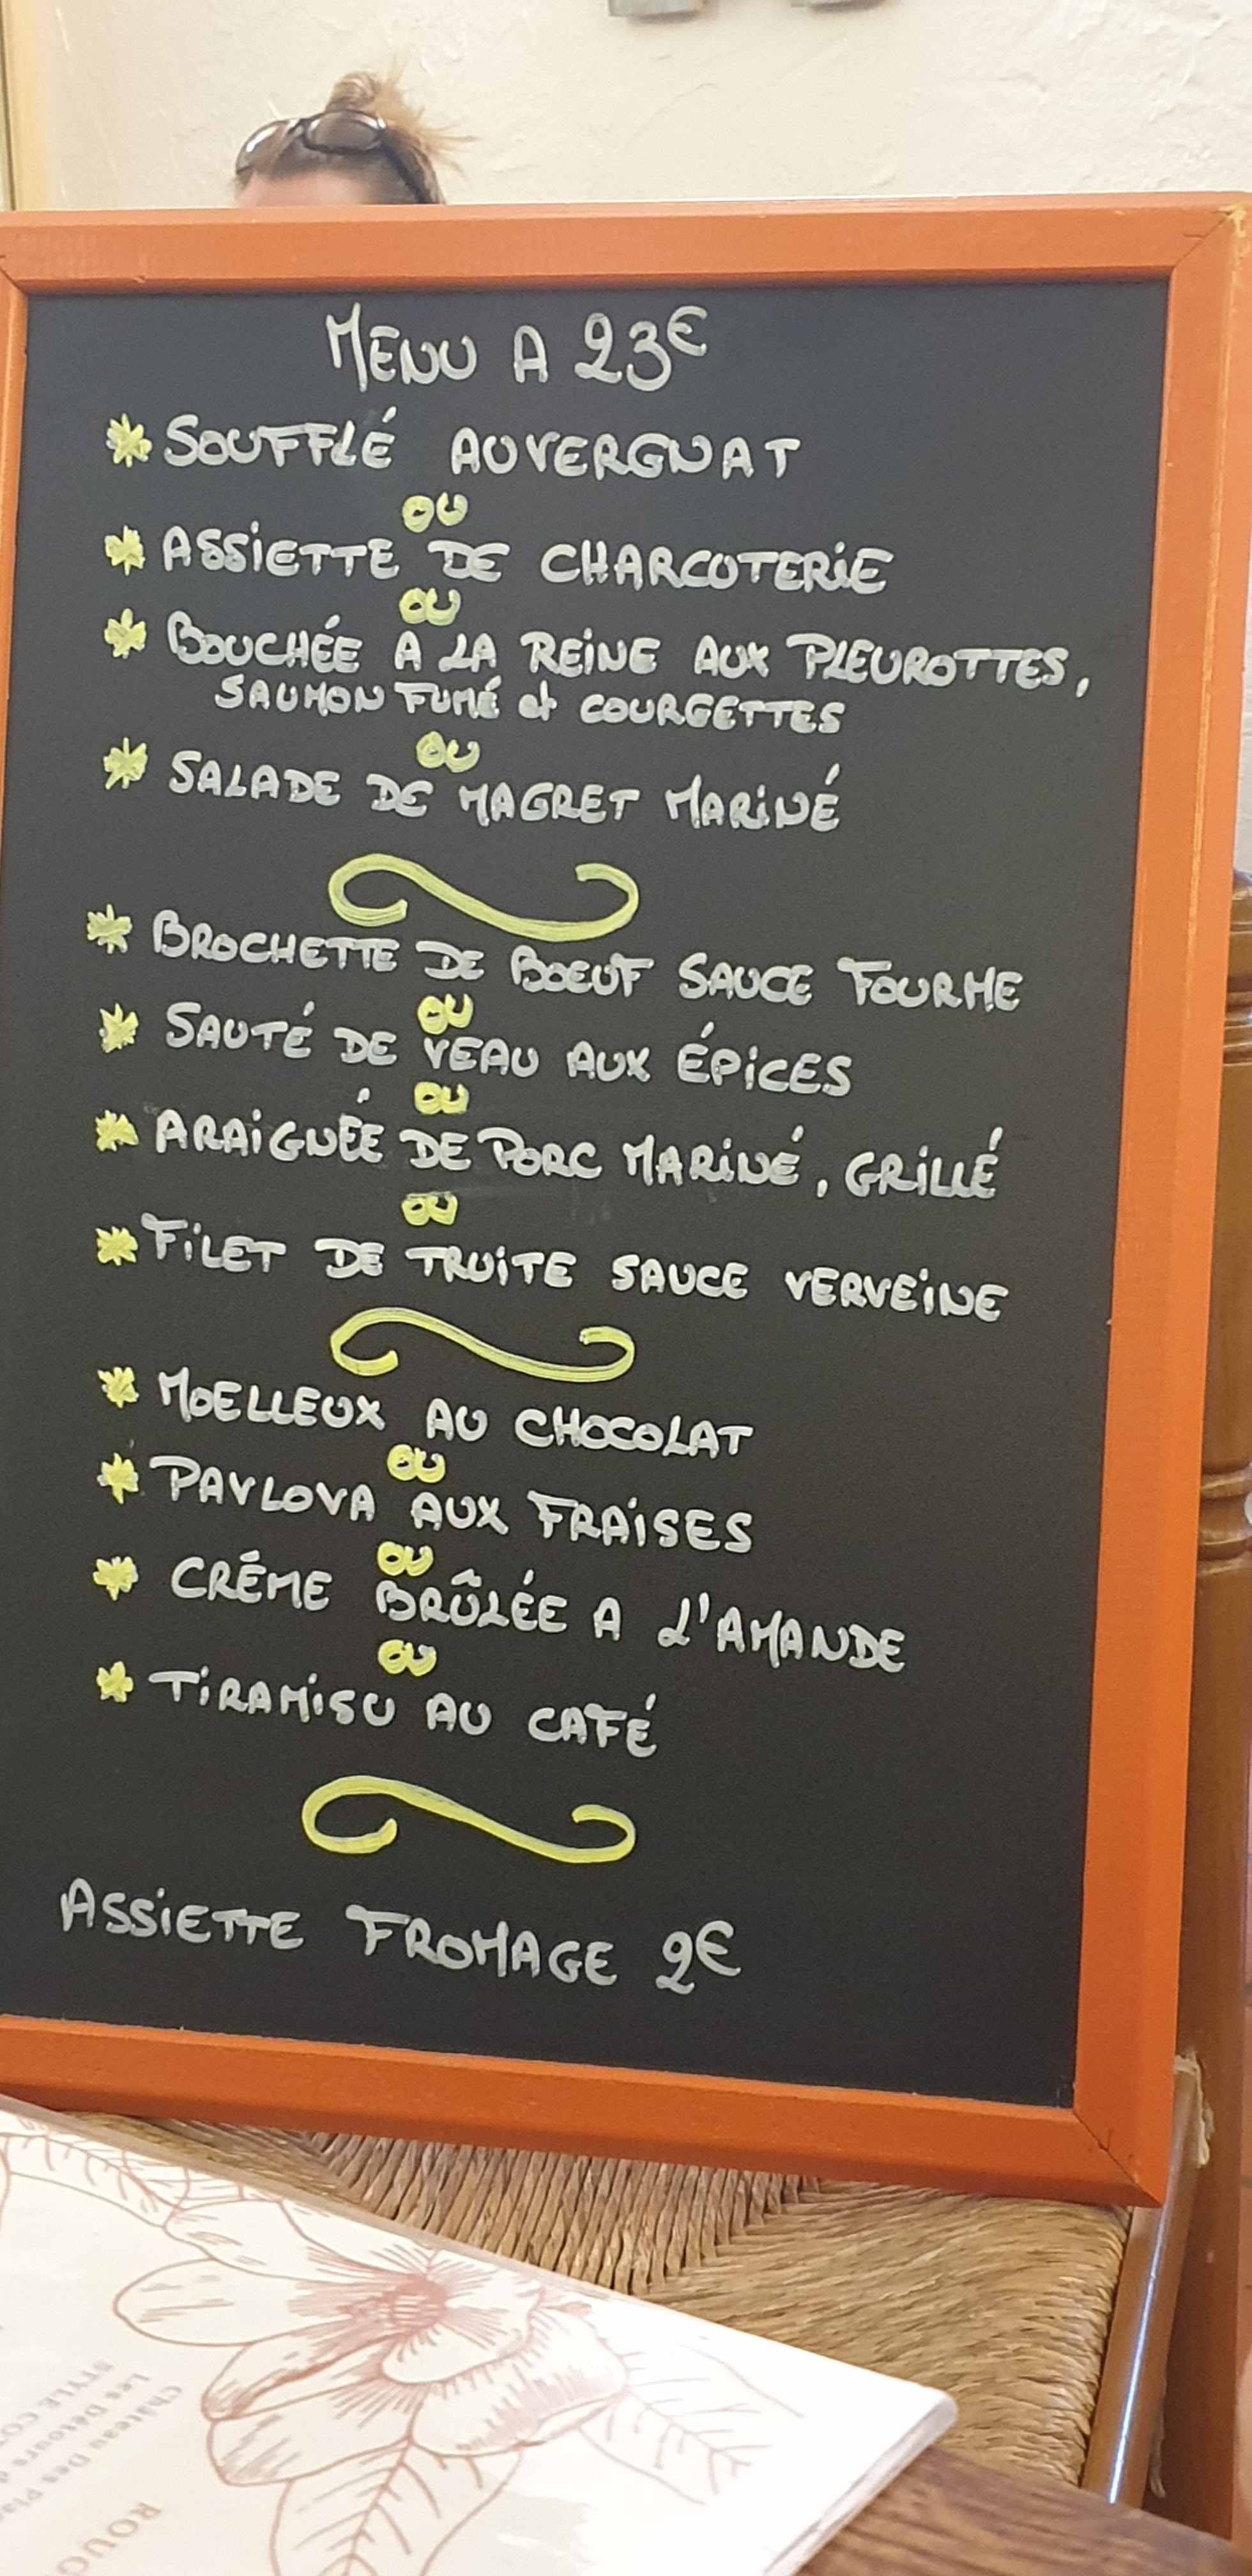 MENU A 23€
SOUFFLÉ AUVERGNAT
OU
ASSIETTE DE CHARCUTERIE
OU
BOUCHÉE A LA REINE AUX PLEUROTTES,
SAUMON FUMÉ et COURGETTES
OU
SALADE DE MAGRET MARINÉ
BROCHETTE DE BOEUF SAUCE FOURME
OU
SAUTÉ DE VEAU AUX ÉPICES
OU
ARAIGNÉE DE PORC MARINÉ, GRILLÉ
OU
FILET DE TRUITE SAUCE VERVEINE
MOELLEUX AU CHOCOLAT
OU
PAVLOVA AUX FRAISES
OU
CRÉME BRÛLÉE A L'AMANDE
OU
TIRAMISU AU CAFÉ
ASSIETTE FROMAGE 2€
Château Des
Les Détours
STYLE